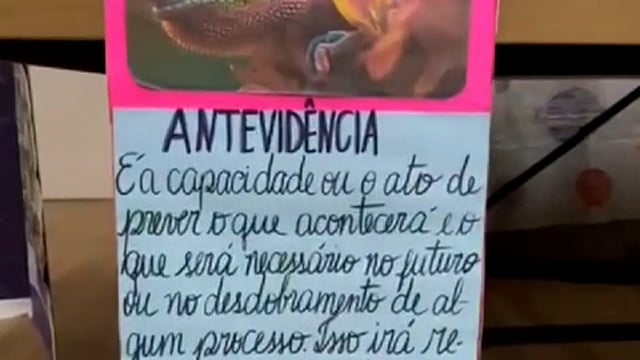 ANTEVIDÊNCIA
É a capacidade ou o ato de
prever o que acontecerá e o
que será necessário no futuro
ou no desdobramento de al-
gum processo. Isso irá re-